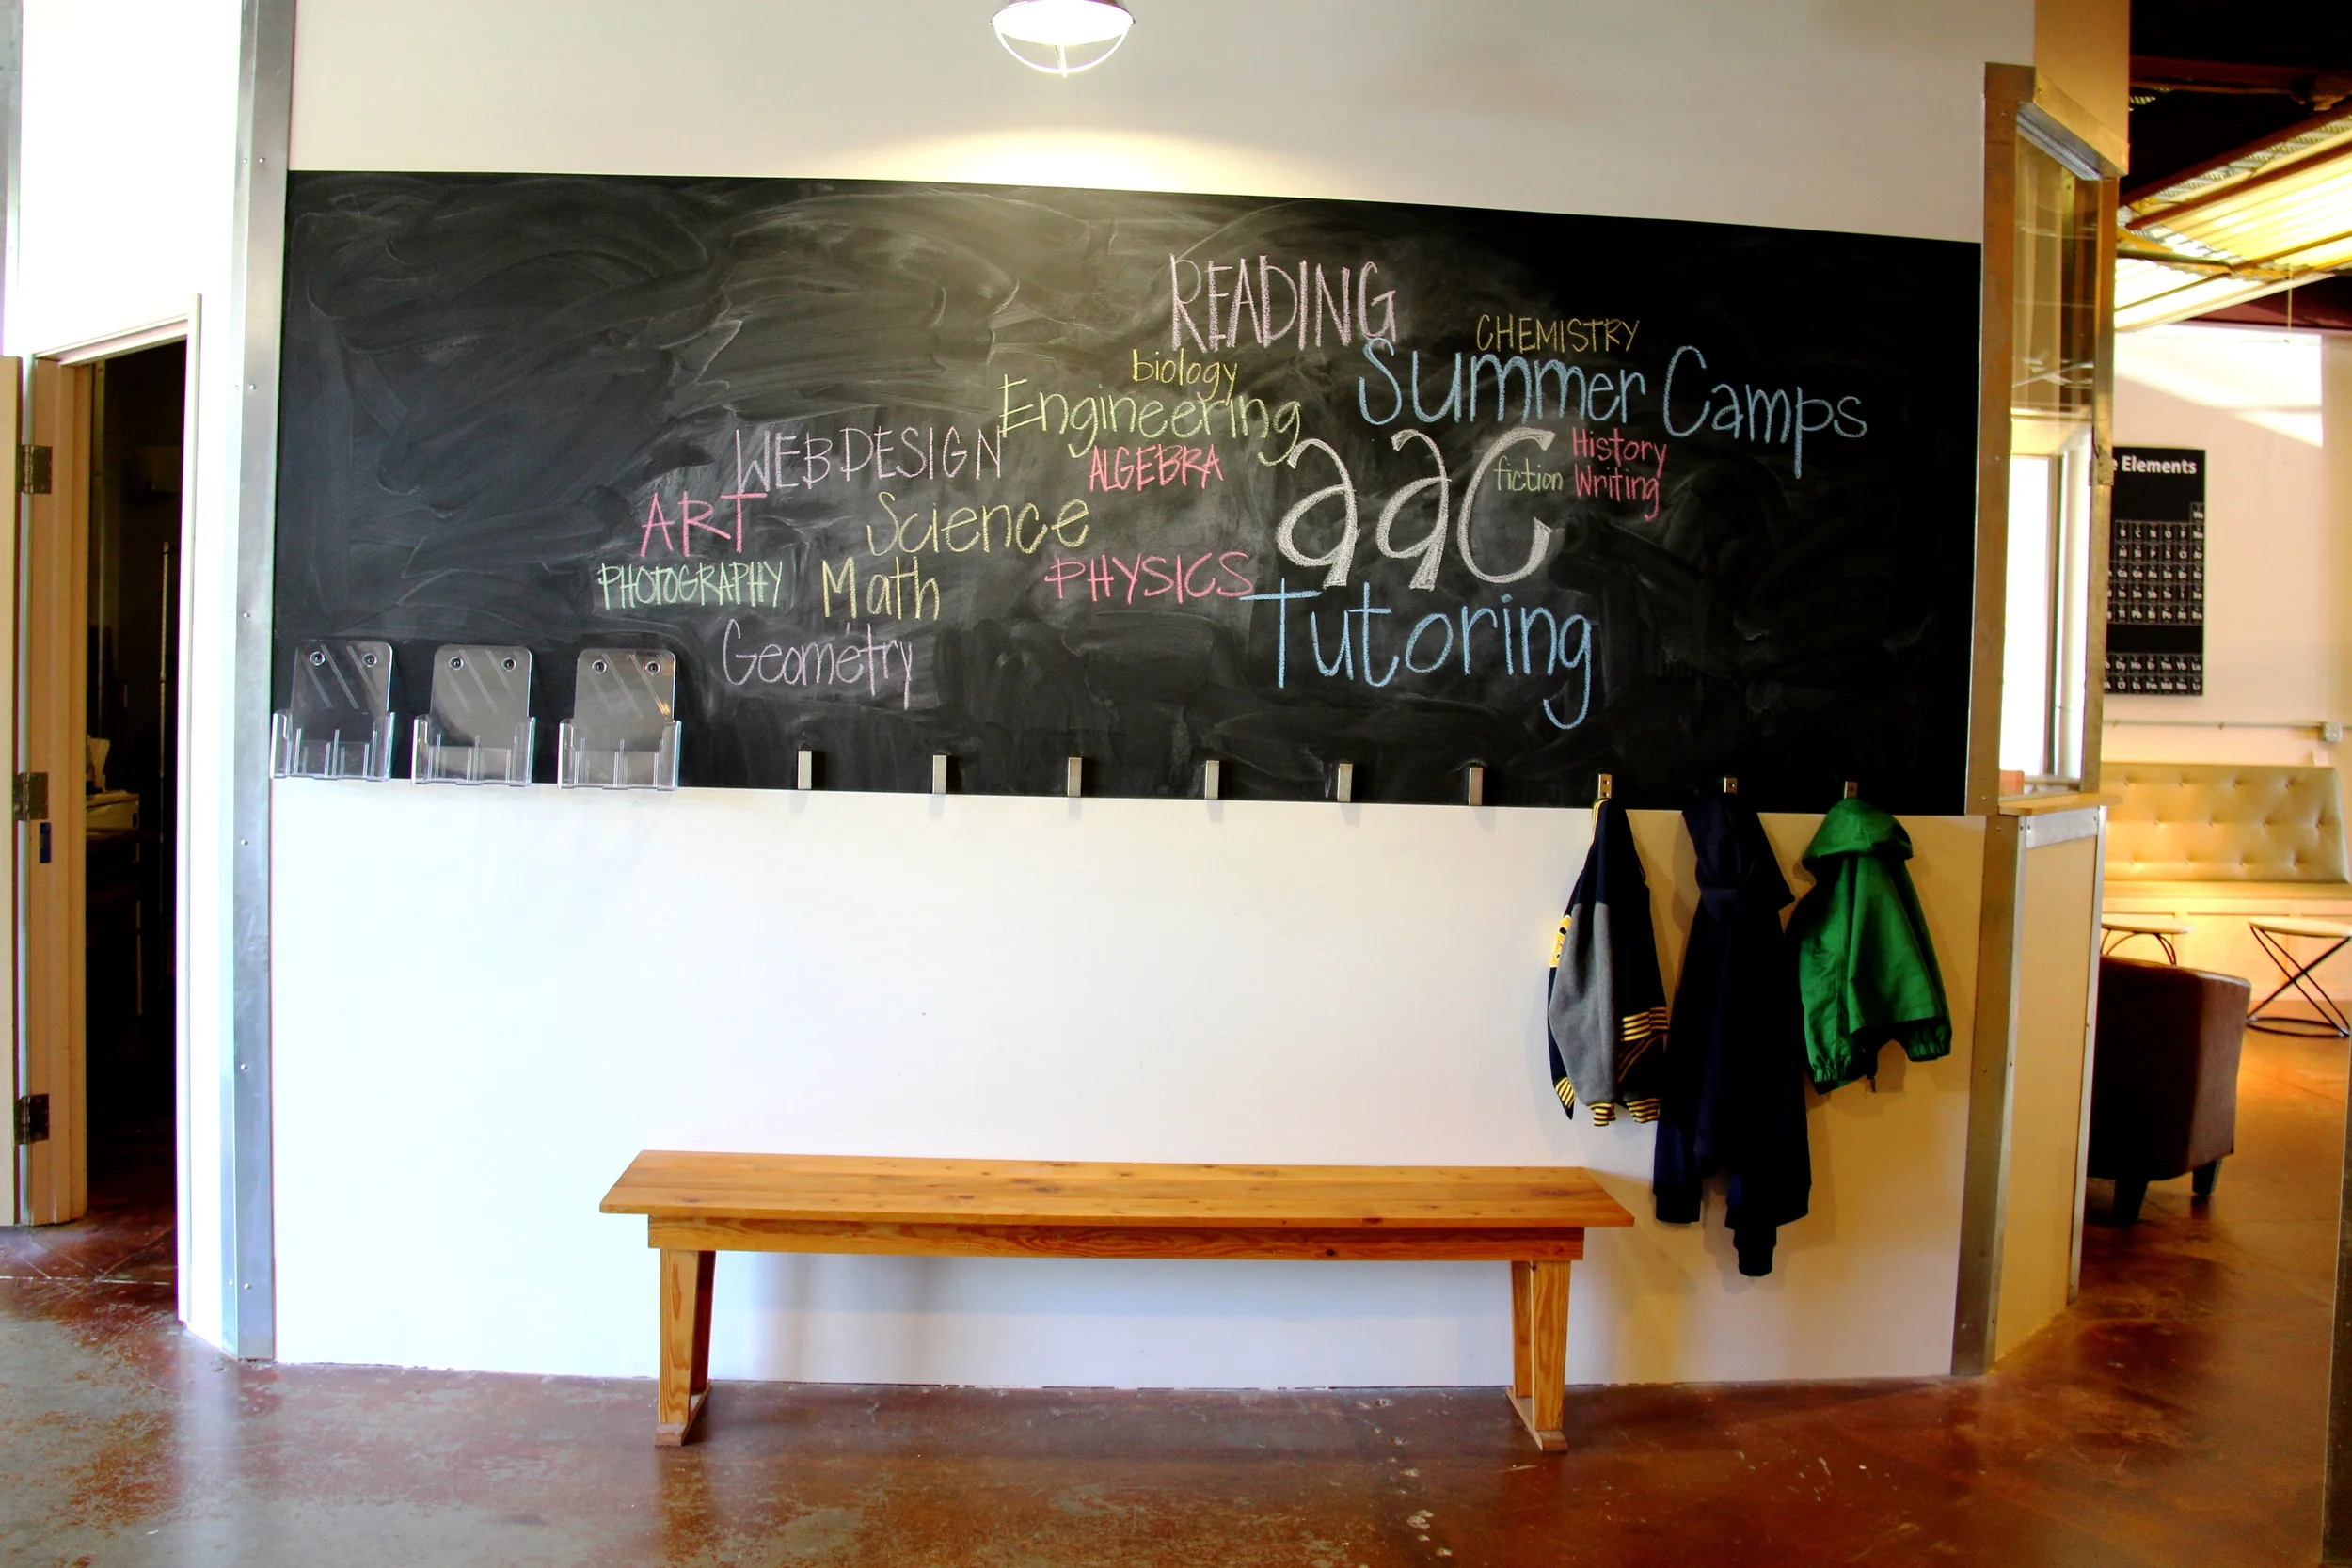 READING
CHEMISTRY
biology
Summer Camps
Engineering
WEB DESIGN
ALGEBRA
aac
History
fiction
Writing
ART
Science
PHOTOGRAPHY
Math
PHYSICS
Tutoring
Geometry
Elements